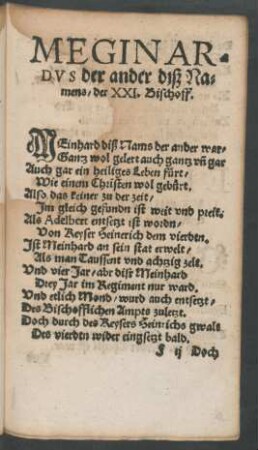 MEGINAR-
DVS der ander diß Na-
mens/ der XXI. Bischoff.
MEinhard diß Nams der ander war/
Gantz wol gelert auch gantz vñ gar
Auch gar ein heiliges Leben fürt/
Wie einem Christen wol gebürt.
Also das keiner zu der zeit/
Im gleich gefunden ist weit vnd preit.
Als Adelbert entsetzt ist worden/
Von Keyser Heinerich dem vierdtn.
Ist Meinhard an sein stat erwelt/
Als man Taussent vnd achtzig zelt.
Vnd vier Jar/ abr diser Meinhard
Drey Jar im Regiment nur ward.
Vnd etlich Mond/ wurd auch entsetzt/
Des Bischofflichen Ampts zuletzt.
Doch durch des Keysers Heinrichs gwalt
Des vierdtn wider eingsetzt bald.
F ij Doch